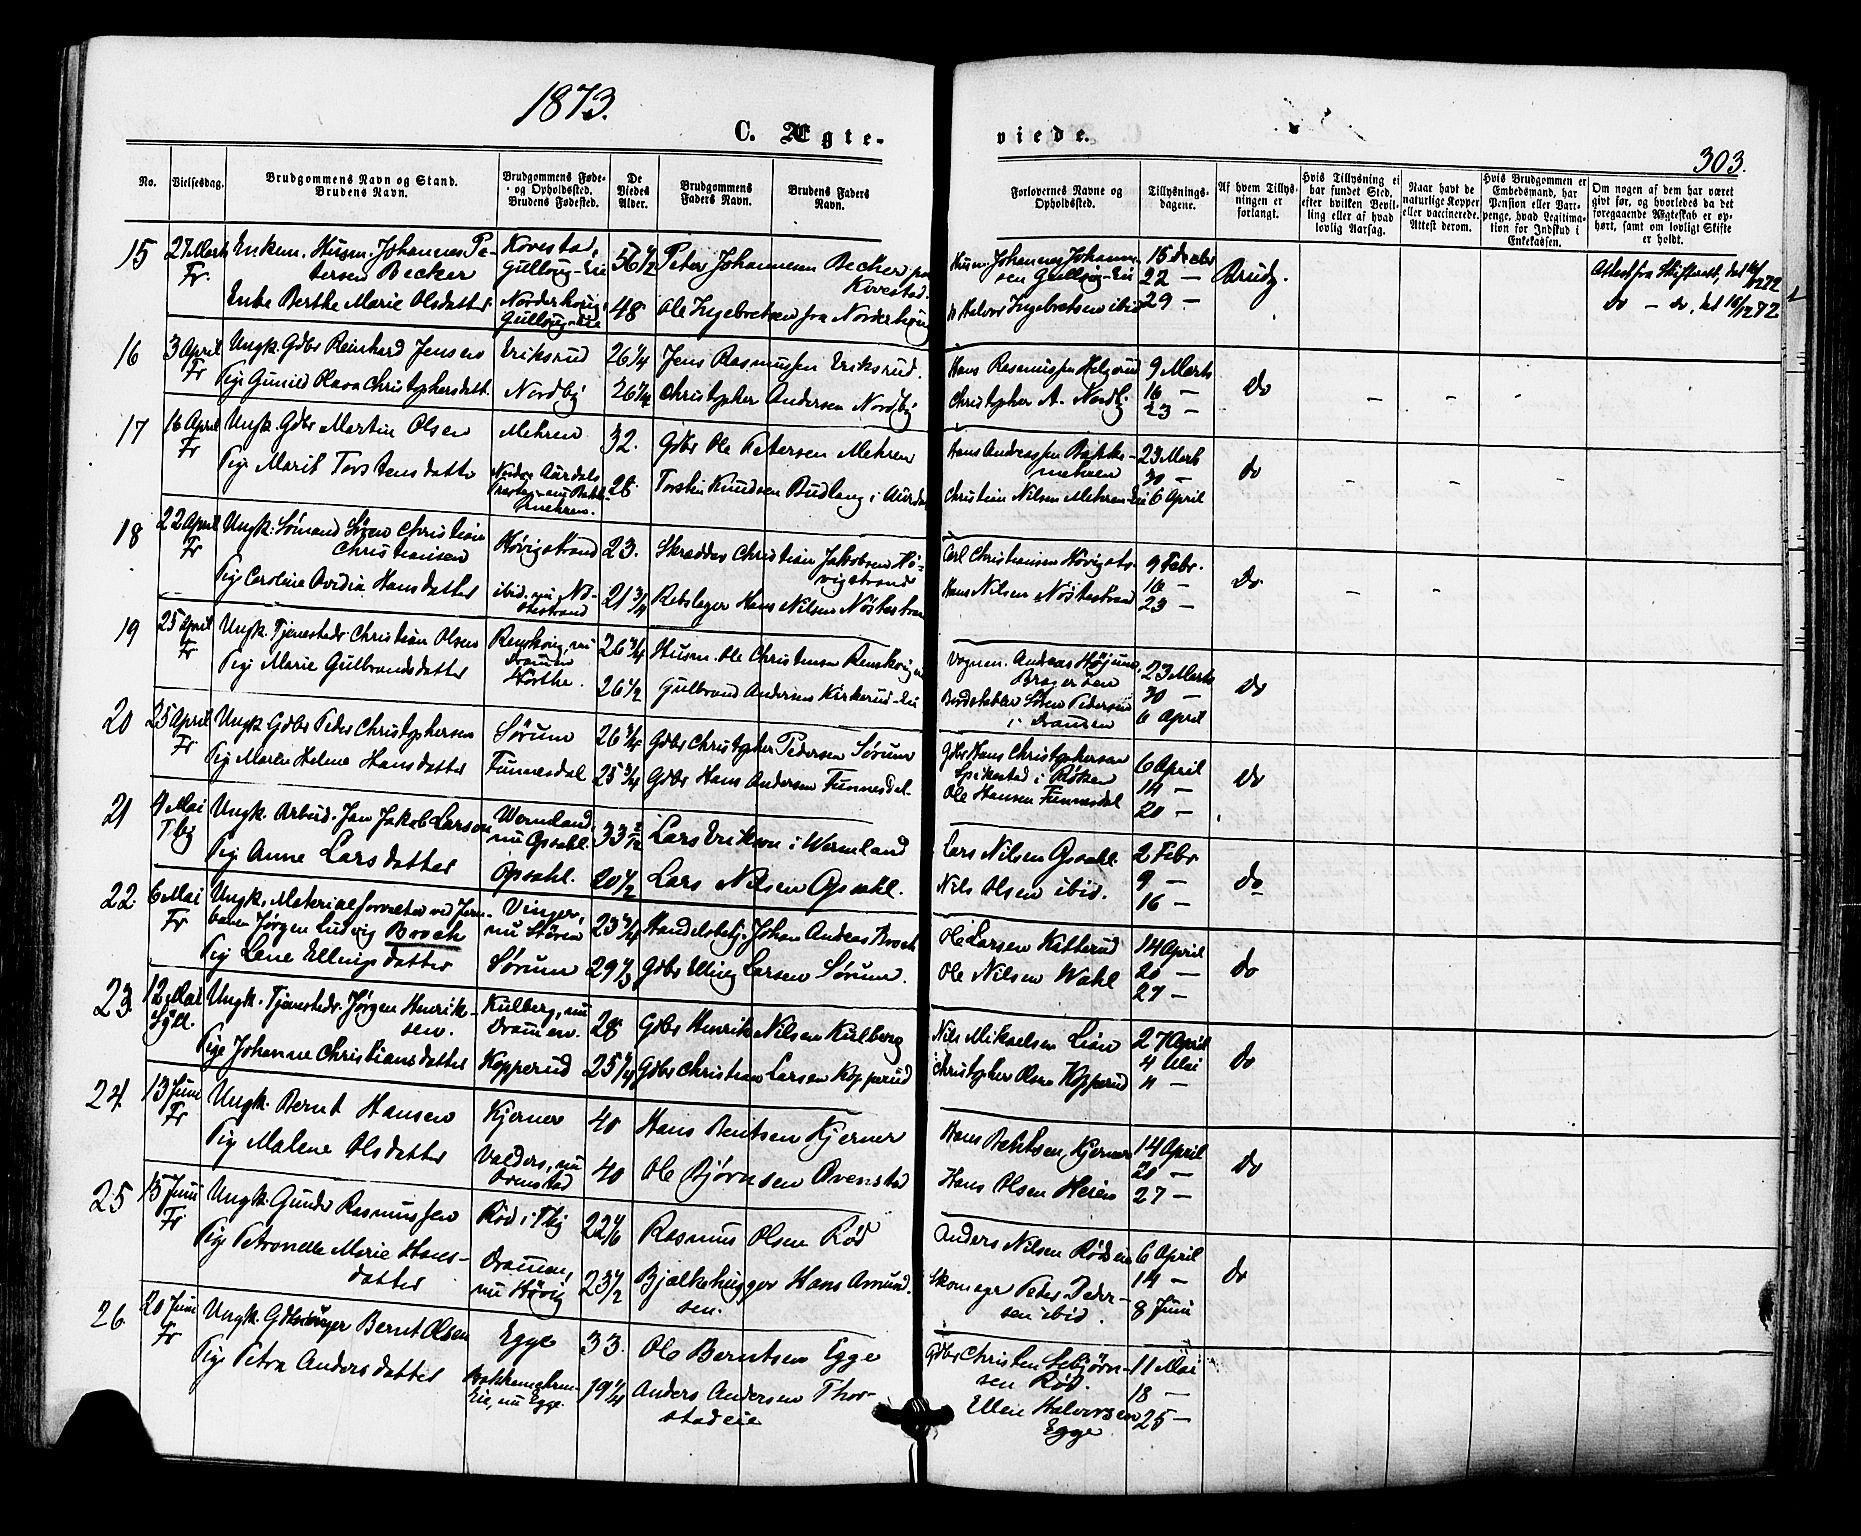 1873.
C. Ægte-
No.
Vielsesdag.
Brudgommens Navn og Stand.
Brudens Navn.
Brudgommens Føde-
og Opholdssted.
Brudens Fødested.
De
Viedes
Alder.
Brudgommens
Faders Navn.
Brudens Faders
Navn.
15 27 Marts Enkem. Husm. Johannes Pe- Kovestad, 56 1/2 Peter Johannesen Becker
Fr. tersen Becker Gullaug-Eie Kovestad.
Enke Berthe Marie Olsdatter Norderhoug, 48 Ole Ingebretsen fra Norderhoug
Gulloug-Eie
16 3 April Ungk. Gdbr Reinhard Jensen Eriksrud 26 1/4 Jens Rasmussen Eriksrud.
Fr
Pige Gunild Olava Christophersdatt. Nordby 26 1/4 Christopher Andersen Nordby
17 16 April Ungk. Gdbr Martin Olsen Mehren 32. Gdbr Ole Petersen Mehren
Fr
Pige Marit Torstensdatter Nordre Aurdals 28 Torsten Knudsen Budlang i Aurdal
Præstegj. nu
mehren.
18 22 April Ungk. Sømand Søren Christian Høvigstrand 23. Skrædder Christian Jakobsen Hø-
Fr Christiansen vigstrand
Pige Caroline Avidia Hansdatter ibid. nu Nø- 21 3/4 Rebslager Hans Nilsen Nøstestran
stestrand
19 25 April Ungk. Tjenestedr. Christian Olsen Renskoug, nu 26 3/4 Husm. Ole Christensen Renskoug
Fr Dramen
Pige Marie Gulbrandsdatter Horthe. 26 1/2 Gulbrand Andersen Kirkerud-Eie
20 25 April Ungk. Gdbr Peder Christophersen Sørum 26 3/4 Gdbr Christopher Pedersen Sørum
Fr
Pige Maren Helene Hansdatter Tunnesdal 25 3/4 Gdbr Hans Andersen Tunnesdal.
21 4 Mai Ungk. Arbeid. Jan Jakob Larsen Wermland, 33 Lars Erikson i Wermland
Tbg nu Opsahl.
Pige Anne Larsdatter Opsahl. 20 1/2 Lars Nilsen Opsahl.
22. 6 Mai Ungk. Materialforvalter ved Jern- Vinger, 23 3/4 Handelsbetj. Johan Andreas Broch
Fr banen Jørgen Ludvig Broch nu Støren
Pige Lene Ellingsdatter Sørum 29 1/3 Gdbr Elling Larsen Sørum.
23. 12 Mai Ungk. Tjenestedr. Jørgen Henrik- Kulberg, nu 28 Gdbr Henrik Nilsen Kulberg
Syll. sen. Dramen.
Pige Johanne Christiansdatter Kopperud 25 1/4 Gdbr Christian Larsen Kopperud
24. 13 Juni Ungk. Bernt Hansen Kjerner 40 Hans Bentsen Kjerner
Fr
Pige Malene Olsdatter Valders, nu 40 Ole Bjørnsen Ovenstad
Ovenstad
25 15 Juni Ungk. Gunder Rasmussen Rød i Thj 22 1/6 Rasmus Olsen Rød
Fr
Pige Petronelle Marie Hans- Dramen, 23 1/2 Bjælkehugger Hans Amund
datter nu Høvig sen.
26 20 Juni Ungk. Bernt Olsen Egge 33. Ole Berntsen Egge
Fr
Pige Petra Andersdatter 19 1/4 Anders Andersen Thor-
Eie, nu Egge. stadeie
viede.
303.
Forlovernes Navne og
Opholdssted.
Tillysnings-
dagene.
Af hvem Tillys-
ningen er
forlangt.
Hvis Tillysning ei
har fundet Sted,
efter hvilken Bevil-
ling eller af hvad
lovlig Aarsag.
Naar havt de
naturlige Kopper
eller vaccinerede.
Attest derom.
Hvis Brudgommen er
Embedsmand, har
Pension eller Vart-
penge, hvad Legitima-
tion for Indskud i
Enkekassen.
Om nogen af dem har været
gift før, og hvorledes da det
foregaaende Ægteskab er op-
hørt, samt om lovligt Skifte
er holdt.
Husm. Johannes Johanne- 15 Decbr Brudg. Attest fra Skifteret, det 16/12 72
sen Gullaug-Eie 22 —
Halvor Ingebretsen ibid 29 — Do — do, det 16/12 72
Hans Rasmussen Helgerud 9 Marts Do — — -
Christopher A. Nordby 16 —
23 —
Hans Andreassen 23 Marts do — — —
mehren 30 —
Christian Nilsen Mehren-Eie 6 April
Carl Christiansen Høvigstr. 9 Febr. Do — -
16 —
Hans Nilsen Nøstestrand 23 —
Vognm. Andreas 23 Marts Do
Bragerøen 30 —
Søren Pedersen 6 April
i Dramen
Gdbr Hans Christophersen 6 April Do
Spikestad i Røken 14 —
Ole Hansen Tunnesdal 20 —
Lars Nilsen Opsahl 2 Febr do
Nils Olsen ibid. 9 —
16 —
Ole Larsen Kitterud 14 April do
Ole Nilsen Wahl 20 —
27 —
Nils Mikaelsen Lian 27 April do
Christopher Olsen Kopperud 4 Mai
11 —
Hans Berntsen Kjerner 14 April Do
20 —
Hans Olsen 27 —
Anders Nilsen Rødseie 6 April Do
Skomager Peter Peder- 14 —
sen ibid. 8 Juni
Gdbr Christen Sebjørn- 11 Mai
sen Rød. 18 —
Ellen Halvorsen 25 —
Egge